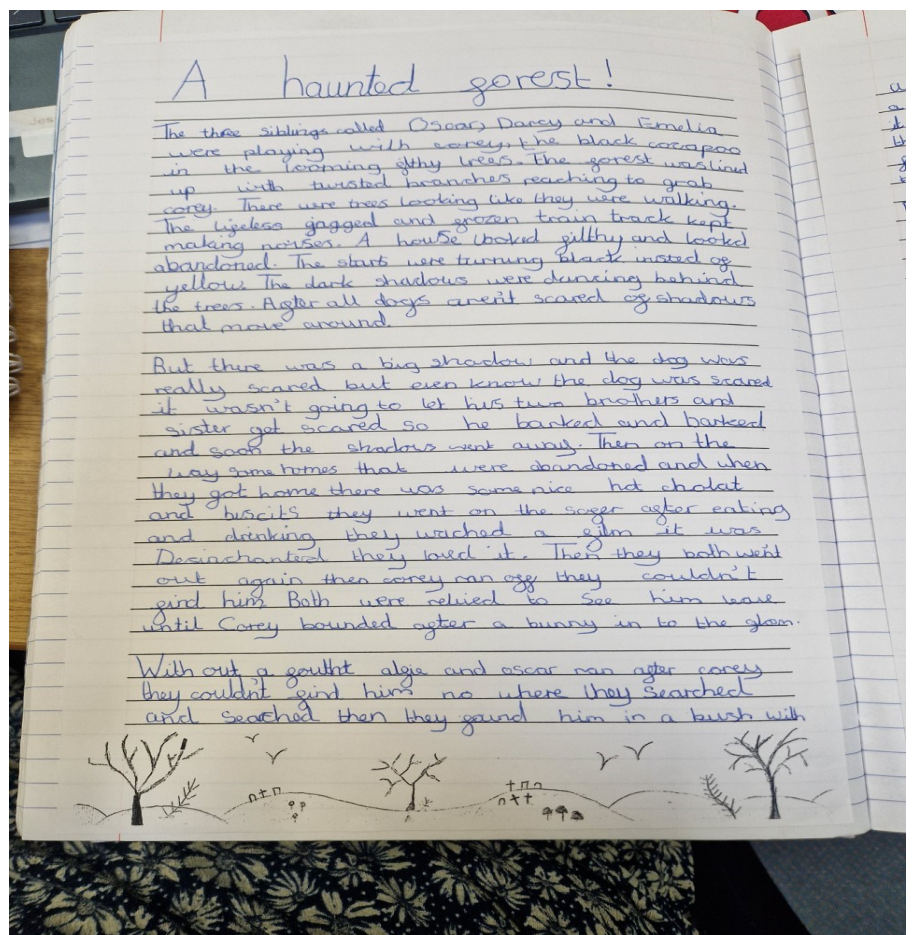 A haunted forest!
The three siblings called Oscar, Darcy and Emelia
were playing with corey, the black cocapoo
in the looming filthy trees. The forest was lined
up with twisted branches reaching to grab
corey. There were trees looking like they were walking.
The lifeless jagged and frozen train track kept
making noises. A house looked filthy and looked
abandoned. The stars were turning black insted of
yellow. The dark shadows were dancing behind
the trees. After all dogs aren't scared of shadows
that move around.
But there was a big shadow and the dog was
really scared but even know the dog was scared
it wasn't going to let his two brothers and
sister get scared so he barked and barked
and soon the shadows went away. Then on the
way some homes that were abandoned and when
they got home there was some nice hot cholat
and biscits they went on the sofer after eating
and drinking they wached a film it was
Desinchanted they loved it. Then they both went
out again then corey ran off they couldn't
find him. Both were relived to see him
until Corey bounded after a bunny in to the glom.
With out a goutht algie and oscar ran after corey
they couldn't find him no where they searched
and searched then they found him in a bush with